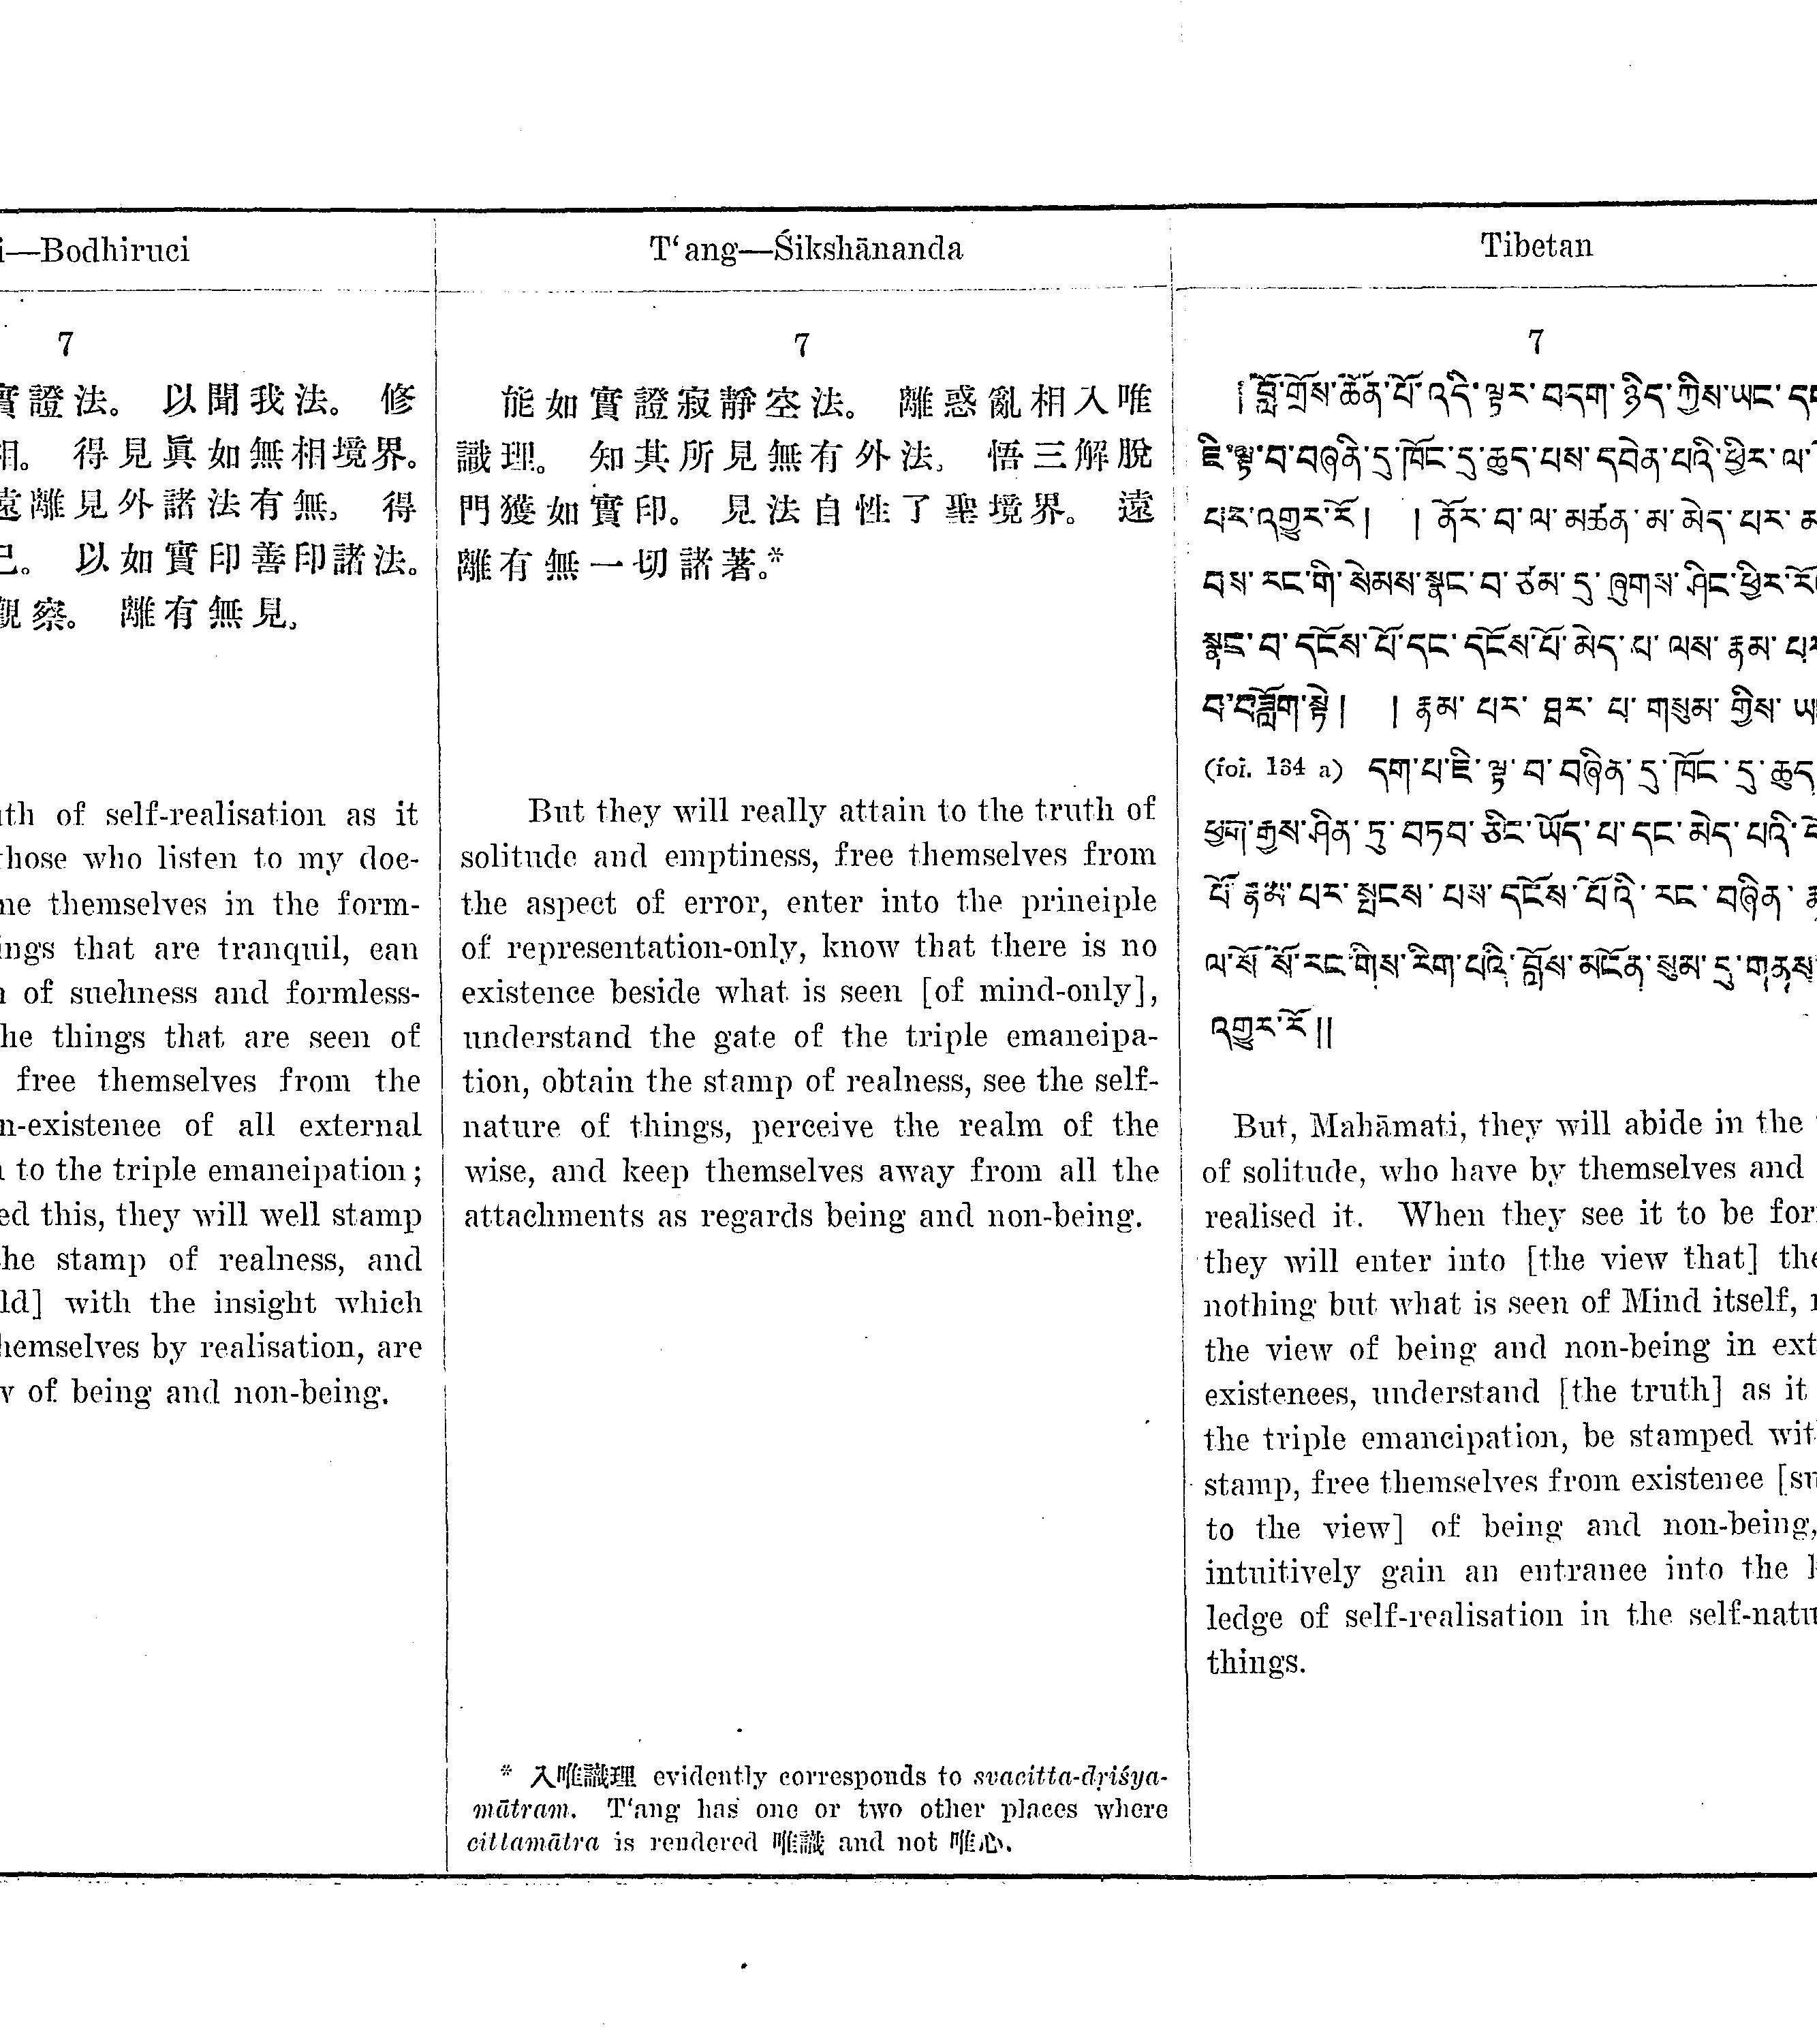 i—Bodhiruci
7
實證法。 以聞我法。 修
相。 得見眞如無相境界。
遠離見外諸法有無, 得
已。 以如實印善印諸法。
觀察。 離有無見,
th of self-realisation as it
those who listen to my doc-
ne themselves in the form-
ings that are tranquil, can
of suchness and formless-
he things that are seen of
free themselves from the
n-existence of all external
to the triple emancipation;
ed this, they will well stamp
he stamp of realness, and
ld] with the insight which
hemselves by realisation, are
of being and non-being.
T‘ang—Śikshānanda
7
能如實證寂靜空法。 離惑亂相入唯
識理。 知其所見無有外法, 悟三解脫
門獲如實印。 見法自性了聖境界。 遠
離有無一切諸著。*
But they will really attain to the truth of
solitude and emptiness, free themselves from
the aspect of error, enter into the principle
of representation-only, know that there is no
existence beside what is seen [of mind-only],
understand the gate of the triple emancipa-
tion, obtain the stamp of realness, see the self-
nature of things, perceive the realm of the
wise, and keep themselves away from all the
attachments as regards being and non-being.
* 入唯識理 evidently corresponds to svacitta-dṛiśya-
mātram. T‘ang has one or two other places where
cittamātra is rendered 唯識 and not 唯心.
Tibetan
7
། བློ་གྲོས་ཆེན་པོ་འདི་ལྟར་བདག་ཉིད་ཀྱིས་ཡང་
ཇི་ལྟ་བ་བཞིན་དུ་ཁོང་དུ་ཆུད་པས་དབེན་པའི་ཕྱིར་ལ་
པར་འགྱུར་རོ། །ནོར་བ་ལ་མཚན་མ་མེད་པར་
བས་རང་གི་སེམས་སྣང་བ་ཙམ་དུ་ཞུགས་ཤིང་ཕྱིར་
སྣང་བ་དངོས་པོ་དང་དངོས་པོ་མེད་པ་ལས་རྣམ་
བ་བཟློག་སྟེ། །རྣམ་པར་ཐར་པ་གསུམ་གྱིས་
(fol. 134 a) དག་པ་ཇི་ལྟ་བ་བཞིན་དུ་ཁོང་དུ་ཆུད་
ཕྱག་རྒྱས་ཤིན་ཏུ་བཏབ་ཅིང་ཡོད་པ་དང་མེད་པའི་
པོ་རྣམ་པར་སྤངས་པས་དངོས་པོའི་རང་བཞིན་
ལ་སོ་སོ་རང་གིས་རིག་པའི་བློས་མངོན་སུམ་དུ་གནས་
འགྱུར་རོ༎
But, Mahāmati, they will abide in the
of solitude, who have by themselves and
realised it. When they see it to be for
they will enter into [the view that] the
nothing but what is seen of Mind itself,
the view of being and non-being in ext
existences, understand [the truth] as it
the triple emancipation, be stamped wit
stamp, free themselves from existence [su
to the view] of being and non-being,
intuitively gain an entrance into the
ledge of self-realisation in the self-natu
things.